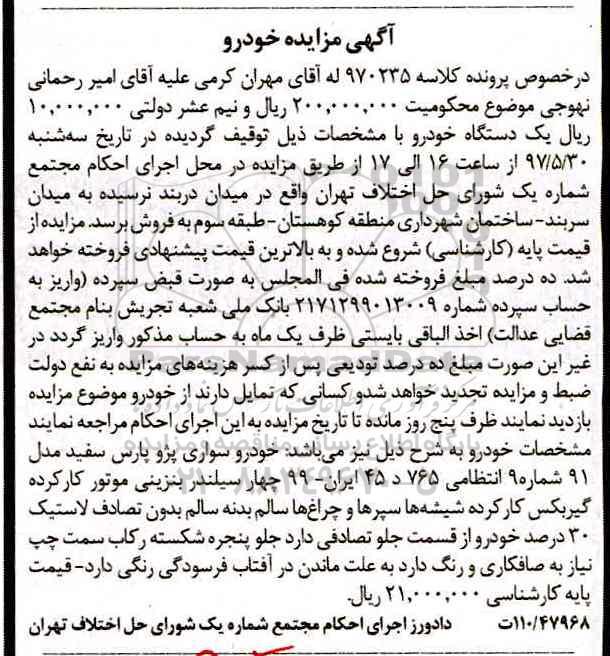 آگهی مزایده خودرو
درخصوص پرونده کلاسه ۹۷۰۲۳۵ له آقای مهران کرمی علیه آقای امیر رحمانی
نهوجی موضوع محکومیت ۲۰۰,۰۰۰,۰۰۰ ریال و نیم عشر دولتی ۱۰,۰۰۰,۰۰۰
ریال یک دستگاه خودرو با مشخصات ذیل توقیف گردیده در تاریخ سه‌شنبه
۹۷/۵/۳۰ از ساعت ۱۶ الی ۱۷ از طریق مزایده در محل اجرای احکام مجتمع
شماره یک شورای حل اختلاف تهران واقع در میدان دربند نرسیده به میدان
سربند-ساختمان شهرداری منطقه کوهستان-طبقه سوم به فروش برسد. مزایده از
قیمت پایه (کارشناسی) شروع شده و به بالاترین قیمت پیشنهادی فروخته خواهد
شد. ده درصد مبلغ فروخته شده فی المجلس به صورت قبض سپرده (واریز به
حساب سپرده شماره ۲۱۷۱۲۹۹۰۱۳۰۰۹ بانک ملی شعبه تجریش بنام مجتمع
قضایی عدالت) اخذ الباقی بایستی ظرف یک ماه به حساب مذکور واریز گردد در
غیر این صورت مبلغ ده درصد تودیعی پس از کسر هزینه‌های مزایده به نفع دولت
ضبط و مزایده تجدید خواهد شدو کسانی که تمایل دارند از خودرو موضوع مزایده
بازدید نمایند ظرف پنج روز مانده تا تاریخ مزایده به این اجرای احکام مراجعه نمایند
مشخصات خودرو به شرح ذیل نیز می‌باشد: خودرو سواری پژو پارس سفید مدل
۹۱ شماره۹ انتظامی ۷۶۵ د ۴۵ ایران- ۹۹ چهار سیلندر بنزینی موتور کارکرده
گیربکس کارکرده شیشه‌ها سپرها و چراغ‌ها سالم بدنه سالم بدون تصادف لاستیک
۳۰ درصد خودرو از قسمت جلو تصادفی دارد جلو پنجره شکسته رکاب سمت چپ
نیاز به صافکاری و رنگ دارد به علت ماندن در آفتاب فرسودگی رنگی دارد-قیمت
پایه کارشناسی ۲۱,۰۰۰,۰۰۰ ریال.
۱۱۰/۴۷۹۶۸ت دادورز اجرای احکام مجتمع شماره یک شورای حل اختلاف تهران
ParsNamadData
پایگاه اطلاع رسانی مناقصه و مزایده